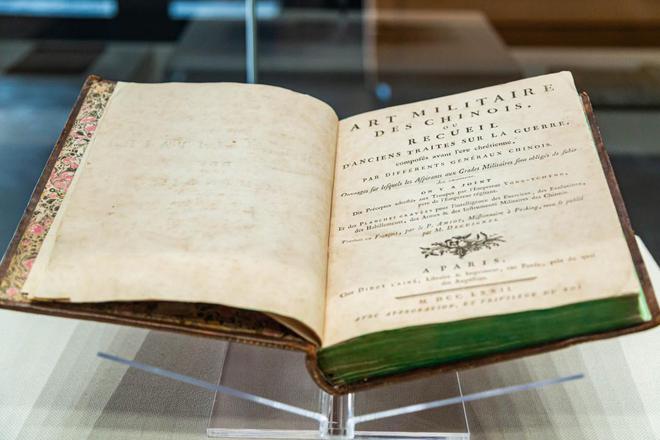 ART MILITAIRE
DES CHINOIS,
OU
RECUEIL
D'ANCIENS TRAITES SUR LA GUERRE,
composés avant l'ere chrétienne,
PAR DIFFÉRENTS GÉNÉRAUX CHINOIS.
Ouvrages sur lesquels les Aspirants aux Grades Militaires sont obligés de subir
des examens.
ON Y A JOINT
Dix Préceptes adressés aux Troupes par l'Empereur YONG-TCHENG,
pere de l'Empereur régnant.
Et des PLANCHES GRAVÉES pour l'intelligence des Exercices, des Evolutions,
des Habillements, des Armes & des Instruments Militaires des Chinois.
Traduit en François, par le P. AMIOT, Missionnaire à Pe-king, revu & publié
par M. DEGUIGNES.
A PARIS,
Chez DIDOT L'AINÉ, Libraire & Imprimeur, rue Pavée, près du quai
des Augustins.
M. DCC. LXXII.
AVEC APPROBATION, ET PRIVILEGE DU ROI